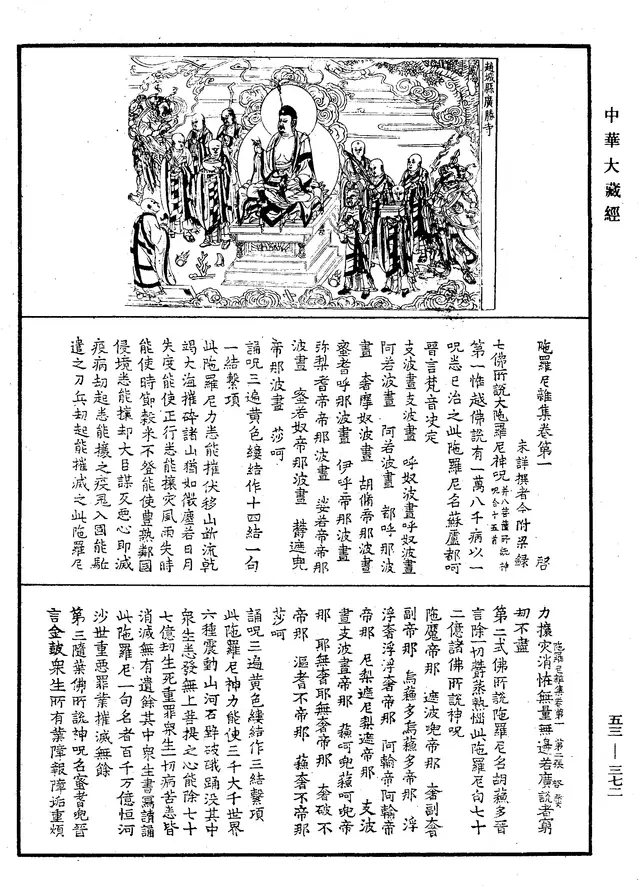 中華大藏經
趙城縣廣勝寺
陁羅尼雜集卷第一
未詳撰者今附梁錄
七佛所說大陁羅尼神呪
第一惟越佛說有一萬八千病以一
呪悉已治之此陁羅尼名蘇盧都呵
晉言梵音決定
支波晝支波晝 呼奴波晝呼奴波晝
阿若波晝 阿若波晝 都呼那波
晝 奢摩奴波晝 胡脩帝那波晝
蜜耆呼那波晝 伊呼帝那波晝
弥梨耆帝帝那波晝 娑若帝帝那
波晝 蜜若奴帝那波晝 遮兜
帝那波晝 莎呵
誦呪三遍黃色縷結作十四結一句
一結繫項
此陁羅尼力悉能摧伏移山斷流乾
竭大海摧碎諸山猶如微塵若日月
失度能使正行悉能攘灾風雨失時
能使時節穀米不登能使豐熟鄰國
侵境悉能攘却大臣謀反惡心即滅
疫病劫起悉能攘之疫鬼入國能駈
遣之刀兵劫起能摧滅之此陁羅尼
五三—三七二
陁羅尼雜集卷第一 第二張
力攘灾消恠無量無邊若廣說者窮
劫不盡
第二式佛所說陁羅尼名胡蘇多晉
言除一切欝蒸熱惱此陁羅尼句七十
二億諸佛所說神呪
陁魔帝那 遮波兜帝那 奢副奢
副帝那 烏蘇多烏蘇多帝那 浮
浮奢浮浮奢帝那 阿輪帝阿輪帝
帝那 尼梨遮尼梨遮帝那 支波
晝支波晝帝那 蘇呵兜蘇呵兜帝
那 耶無奢耶無奢帝那 奢破不
帝那 漚耆不帝那 蘇奢不帝那
莎呵
誦呪三遍黃色縷結作三結繫項
此陁羅尼神力能使三千大千世界
六種震動山河石壁破碎踊沒其中
衆生悉發無上菩提之心能除七十
七億劫生死重罪衆生一切病苦悉皆
消滅無有遺餘其中衆生書寫讀誦
此陁羅尼一句名者百千万億恒河
沙世重惡罪業摧滅無餘
第三隨葉佛所說神呪名蜜耆兜晉
言金皷衆生所有業障報障垢重煩